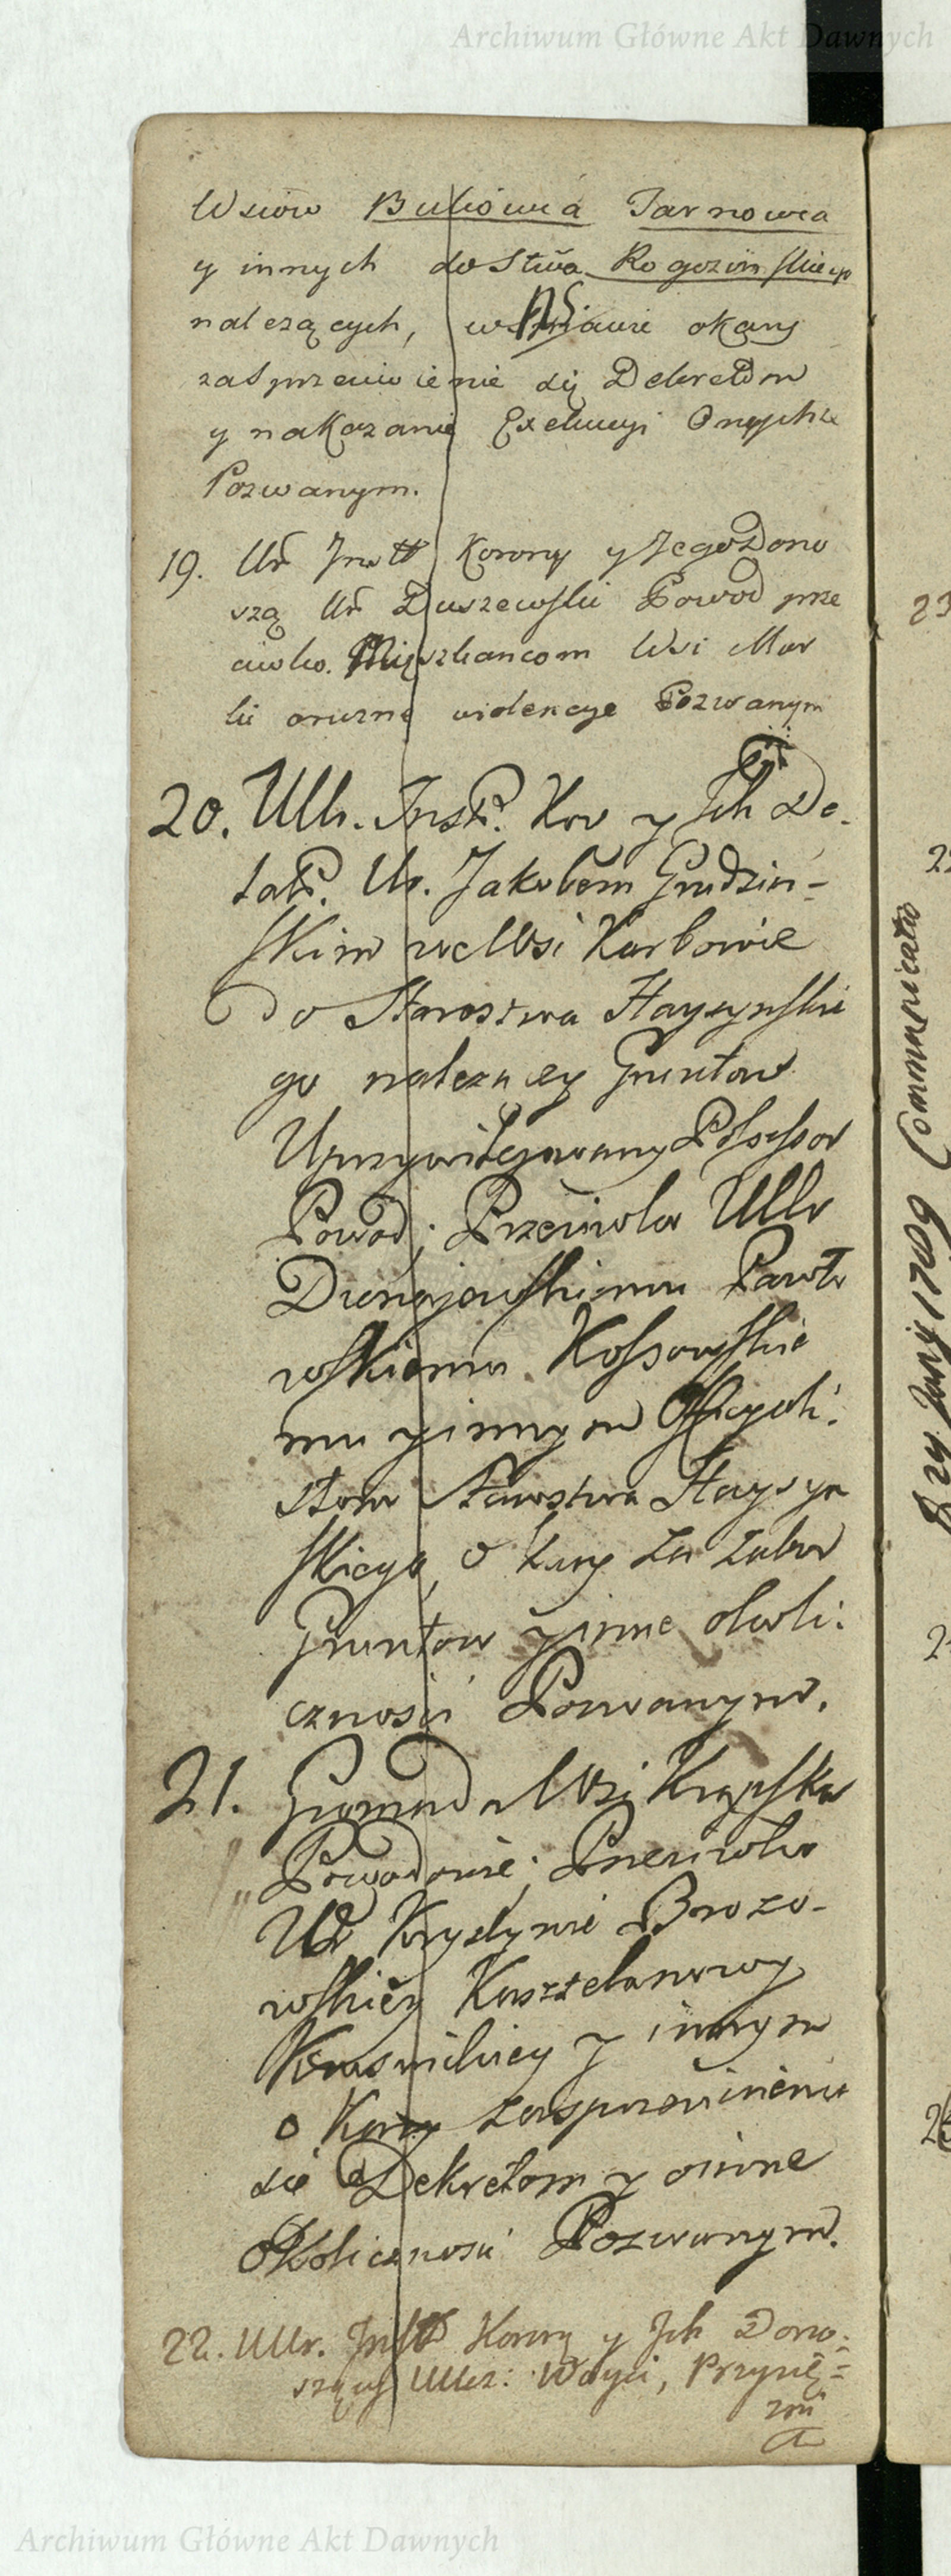 Archiwum Główne Akt Dawnych
Wsiów Bukówia Tarnowca
y innych do Stwa Rogozińskiego
należących, okary
zasprzeciwienie się Dekretom
y nakazanie Exekucyi Onychże
Pozwanym.
19. Ur Inst Korony y Jego Dono
szą Ur Duszewski Powod prze
ciwko. Mieszkancom Wsi Mar
ki oruzne wiolencye Pozwanym
20. Ulb. Inst. Kor y Jch De-
lat. Ur. Jakobem Grudzin-
skim we Wsi Karbowie
do Starostwa
go należącey Gruntow
Uprzywilejowany Possessor
Powod; Przeciwko UUr
Dunajewskiemu Pawło
wskiemu Kossowskie
mu y innym Officyali:
stom Starostwa
skiego, o kary za zabor
Gruntow y inne okoli:
cznosci Pozwanym.
21. Gromada Wsi Krępska
Powodowie; Przeciwko
W Krystynie Brozo-
wskiey Kasztelanowy
y innym
o Kary zasprzeciwienie
sie Dekretom y o inne
Okolicznosci Pozwanym.
22. UUr. Inst Korony y Jch Dono:
szący UUr: Woyci, Przysię=
zni
23
Communicatio
24 Junij 1789
Archiwum Główne Akt Dawnych